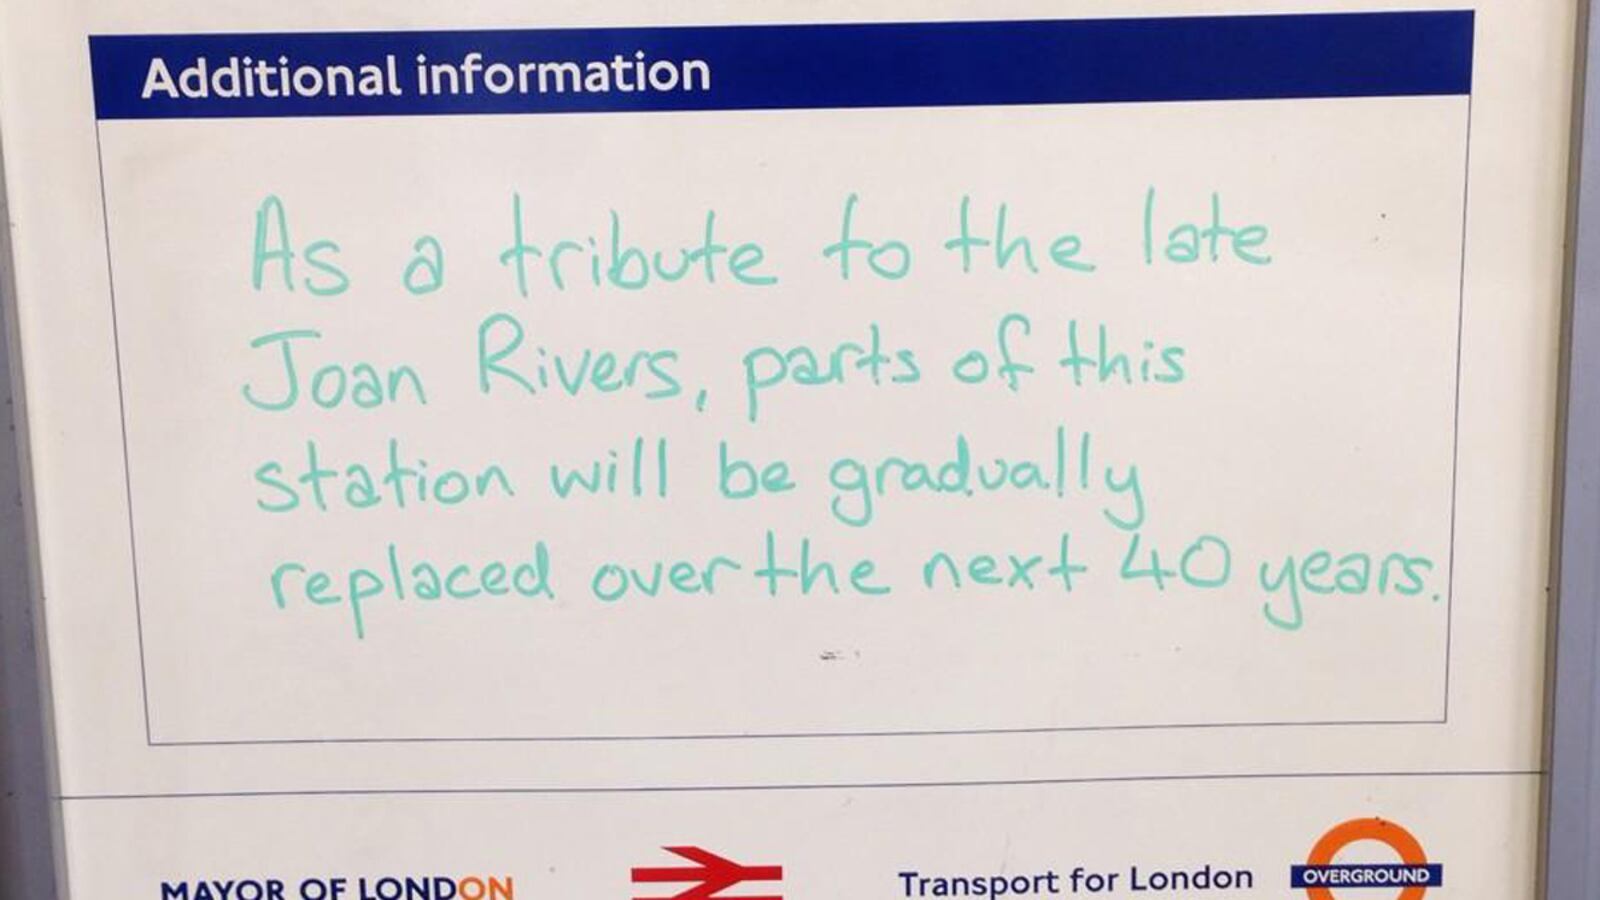 Additional information
As a tribute to the late
Joan Rivers, parts of this
station will be gradually
replaced over the next 40 years.
MAYOR OF LONDON
Transport for London
OVERGROUND